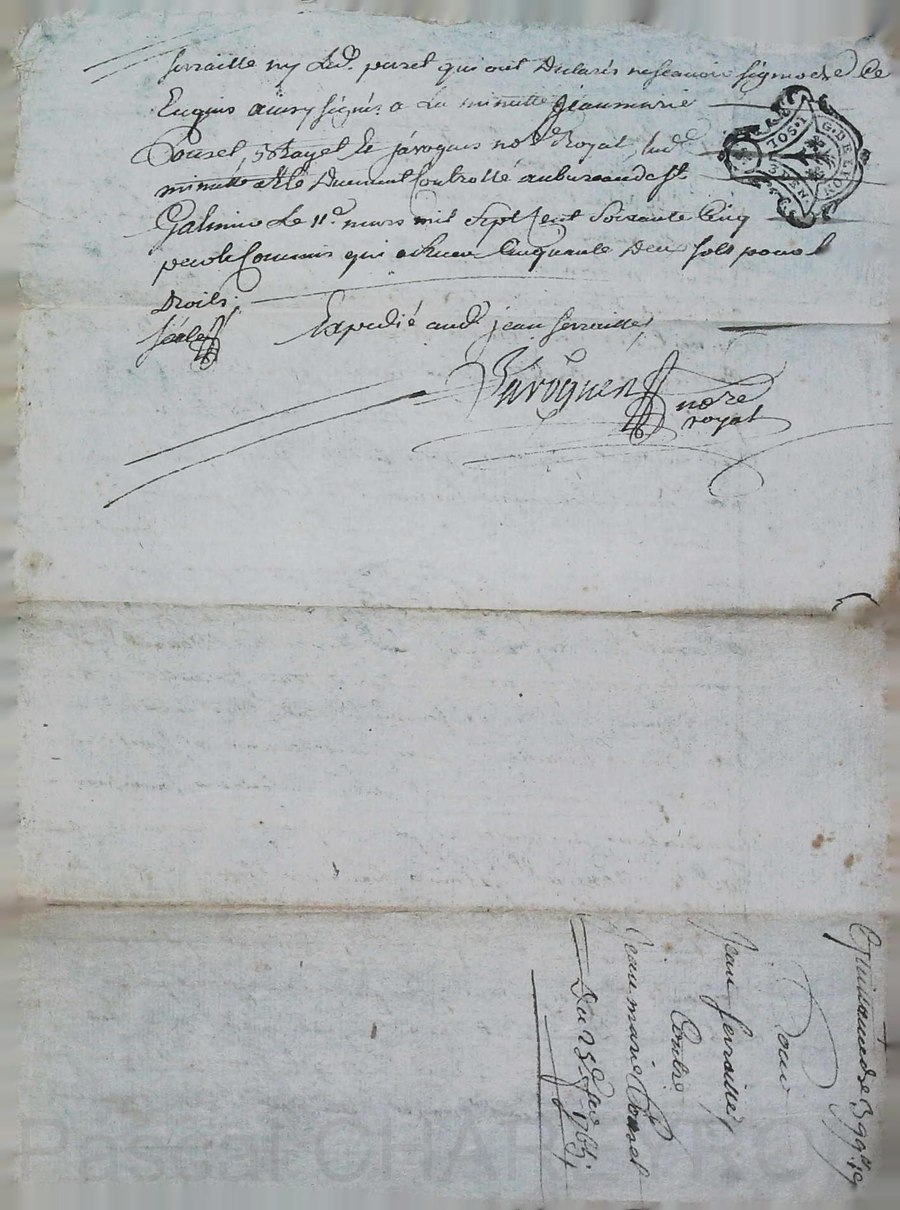 ferraille ny led. poncet qui ont declarés ne scavoir signer de ce
Enquis ainsy signés a la minutte Jeanmarie
Poncet, et javogues not.re Royal, lad.
minutte a eté Duement Controllé au bureau de st
Galmier Le 11.e mars mil Sept Cent Soixante Cinq
par le Commis qui a Receu Cinquante Deux sols pour l
Droits;
Scelé
Expedié aud. jean ferraille,
Javoguen
nore
royal
1 SOL
3 DEN.
G. DE LYON
Quittance de 399
Pour
Jean ferraille
Contre
Jean marie Poncet
Du 25 fev. 1765;
Pascal CHARTARO